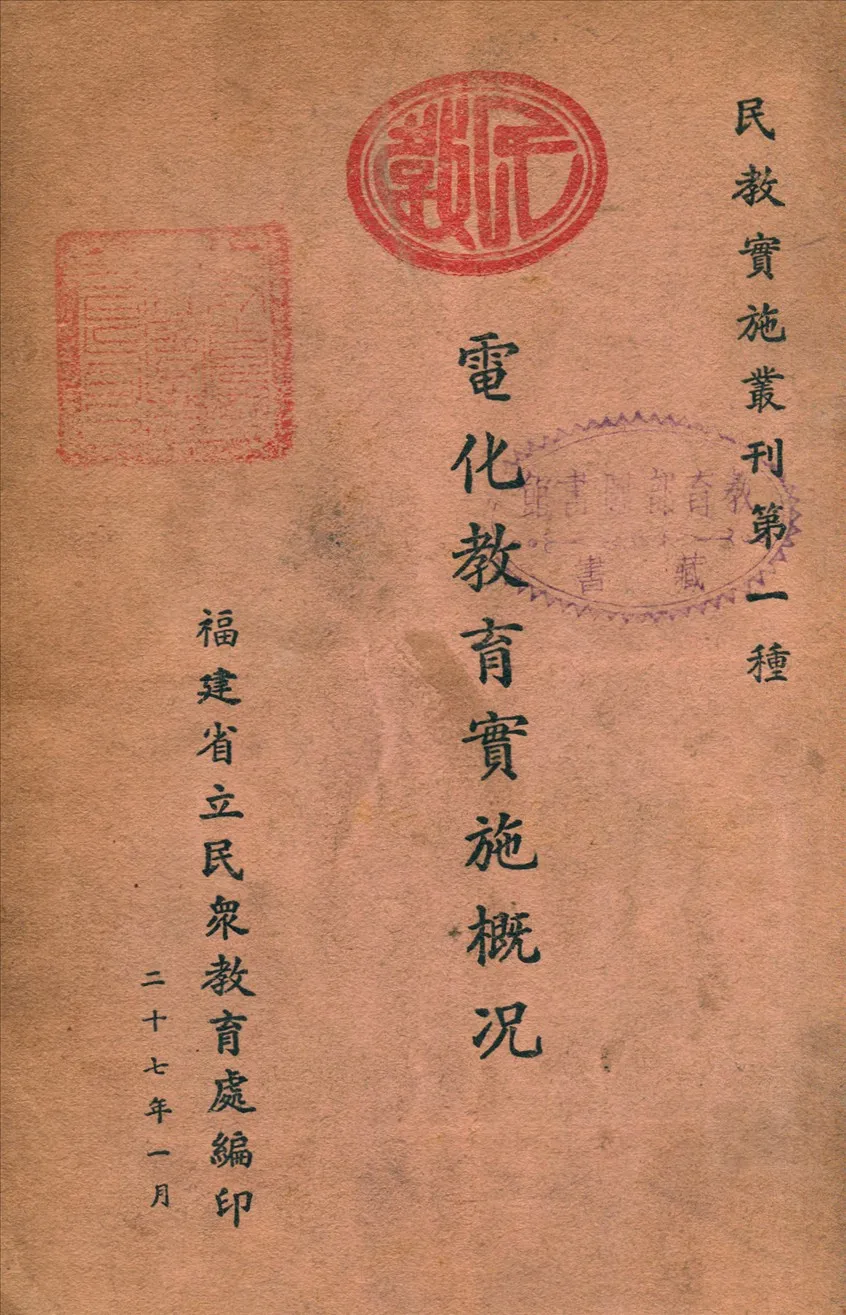 民教實施叢刊第一種
民教
電化教育實施概况
教育部圖書館
藏書
福建省立民眾教育處編印
二十七年一月